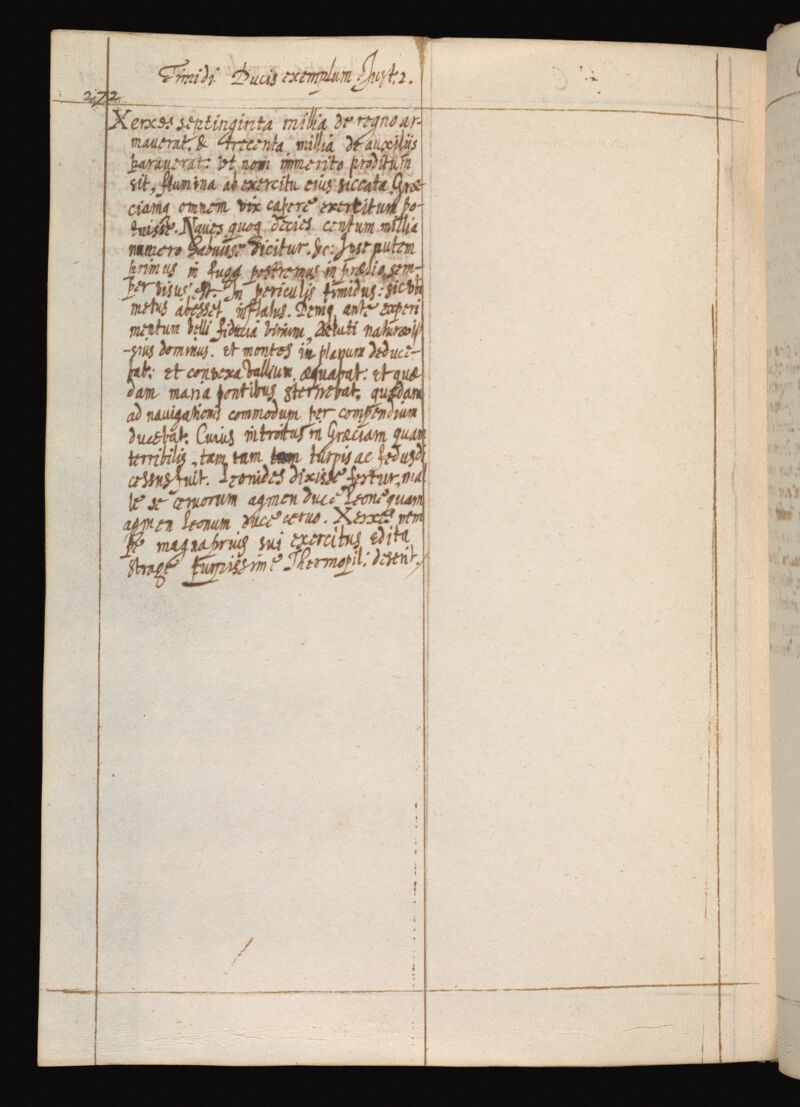 Timidi Ducis exemplum Just: 2.
272
Xerxes septinginta millia de regno ar-
maverat. & trecenta millia de auxiliis
paraverat: Ut non immerito proditum
sit, flumina ab exercitu eius siccata Græ
ciamq omnem vix capere exercitum po-
tuisse. Naves quoq decies centum millia
numero habuisse dicitur. &c: Ipse autem
primus in fuga postremus in prælio sem-
per visus est. In periculis timidus: sicubi
metus abesset inflatus. Deniq ante experi
mentum belli fiducia virium, veluti naturæ ip
-sius dominus. et montes in planum deduce-
bat: et convexa vallium æquabat: et quæ
dam maria pontibus sternebat, quædam
ad navigationis commodum per compendium
ducebat. Cuius introitus in Græciam quam
terribilis, tam tam turpis ac fedus di
cessus fuit. Leonides dixisse fertur, mal
le se cervorum agmen duce Leone quam
agmen leonum duce cervo. Xerxes nem
pe magna prius sui exercitus edita
strage turpissime Thermopil: deserit.